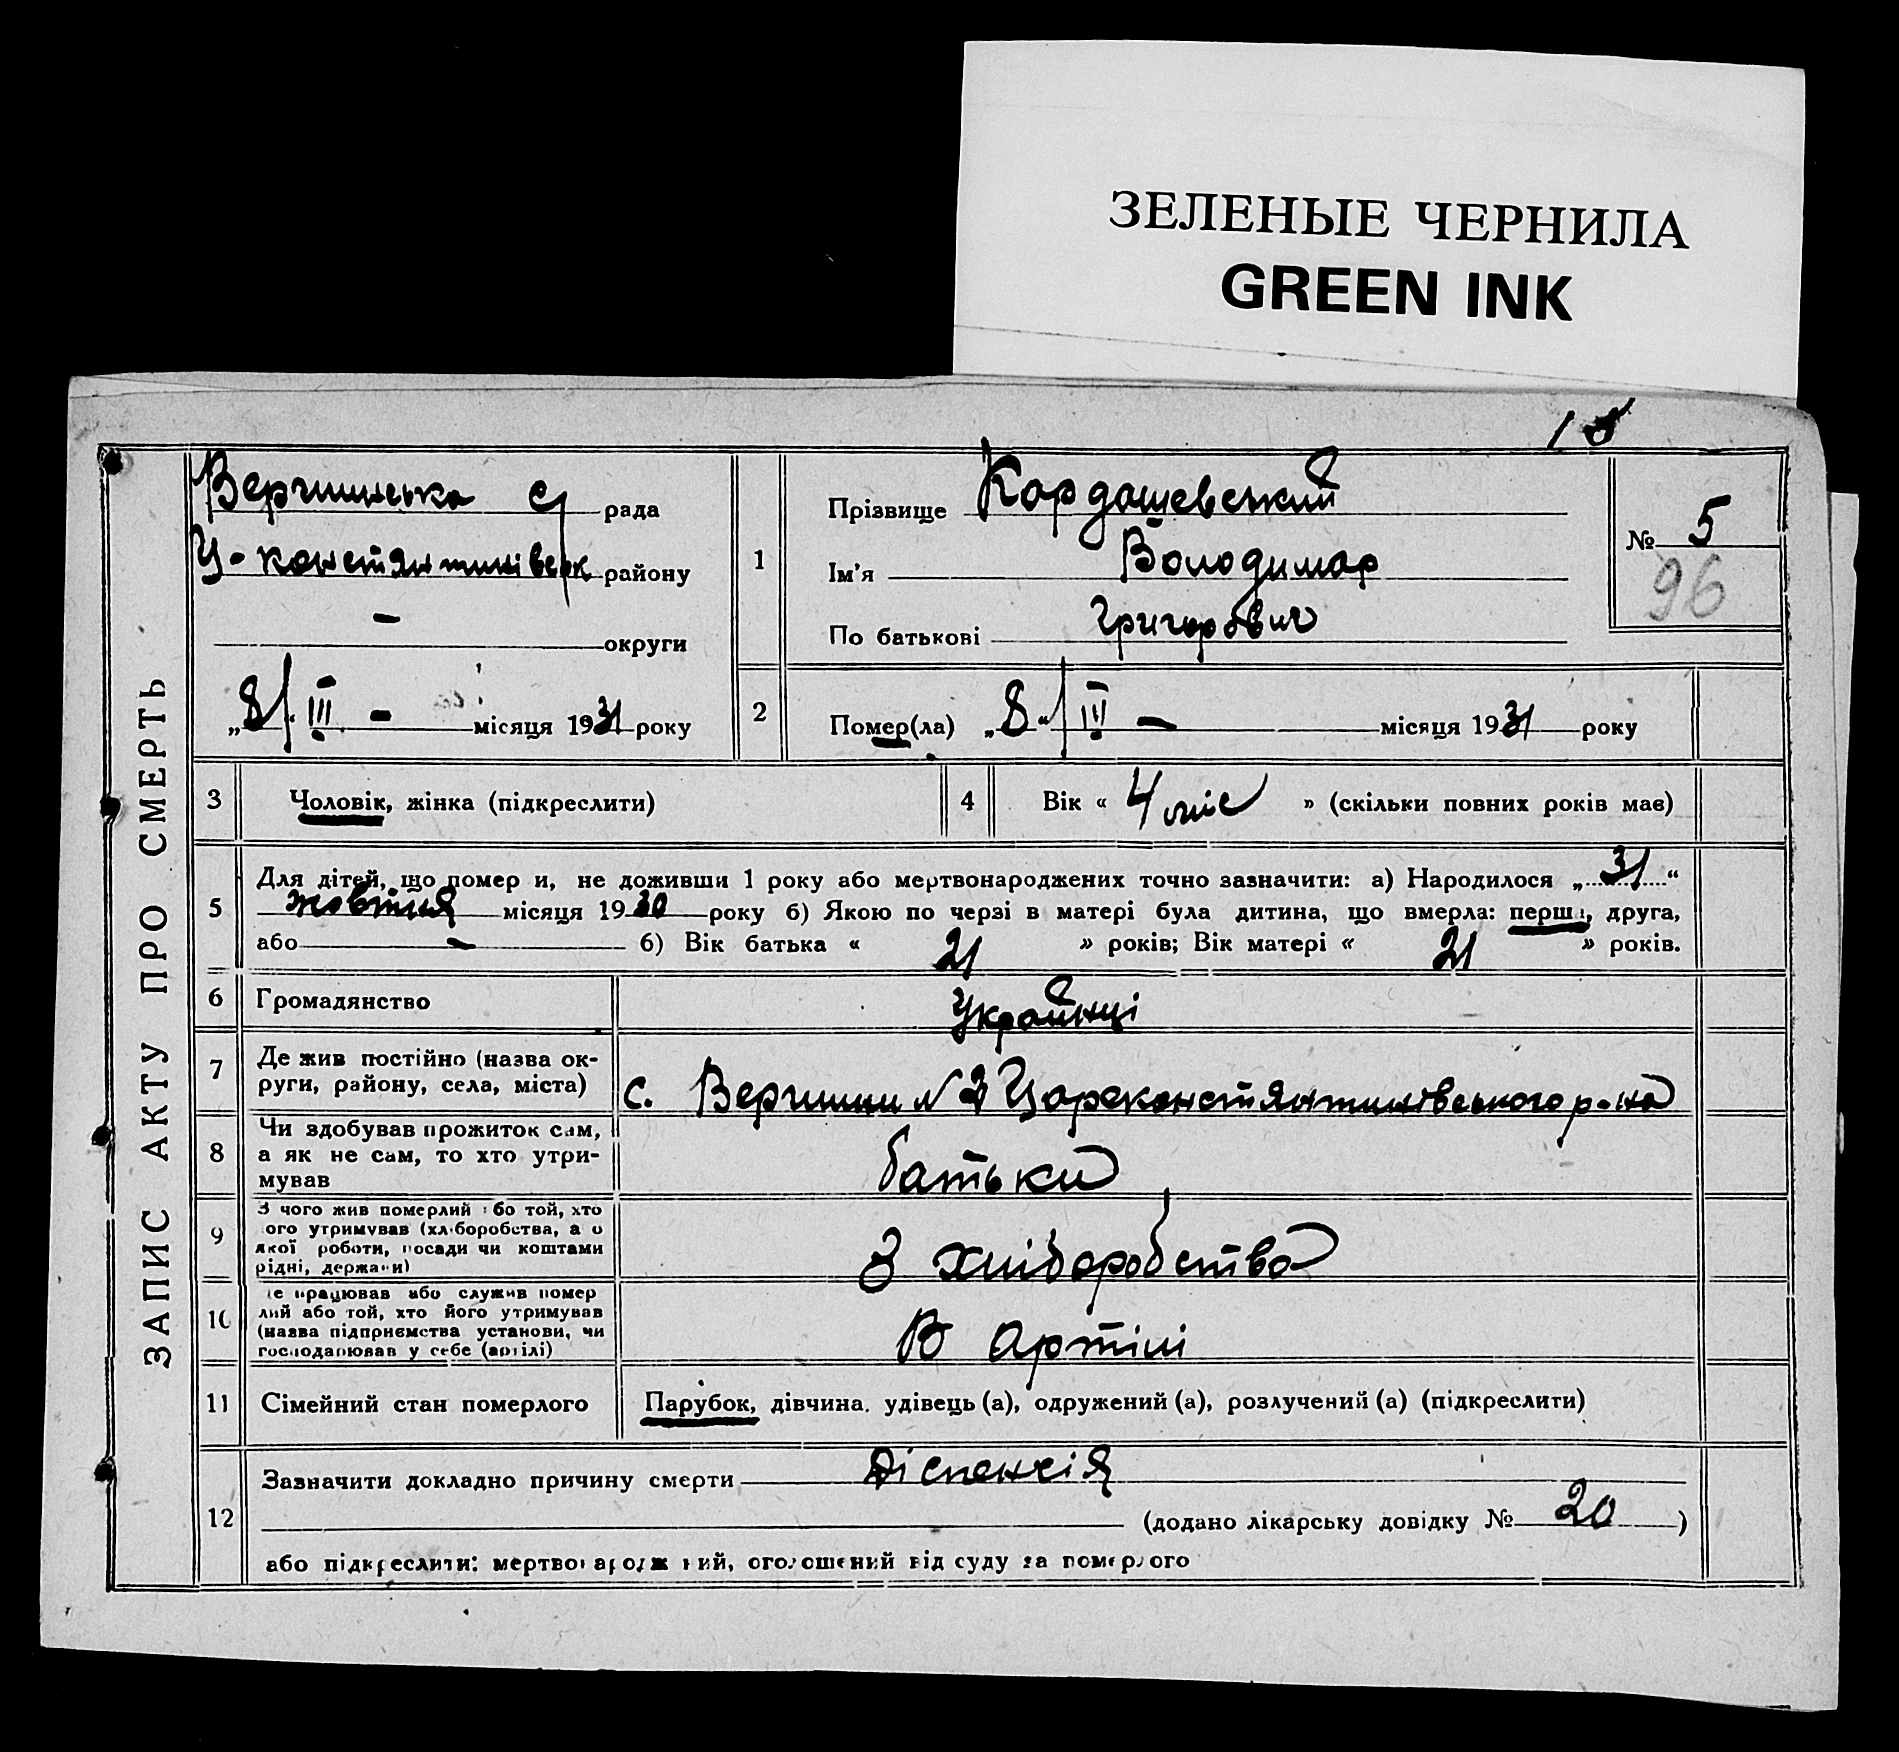 ЗЕЛЕНЫЕ ЧЕРНИЛА
GREEN INK
ЗАПИС АКТУ ПРО СМЕРТЬ
Вершинська с/ рада
Ц-констянтинівськ району
- округи
„8/. III - місяця 1931 року
1
Прізвище Кардашевський
Ім'я Володимар
По батькові Григорович
№ 5
96
2
Помер(ла) „8“/ III - місяця 1931 року
3 Чоловік, жінка (підкреслити)
4 Вік « 4 міс » (скільки повних років має)
5
Для дітей, що помер и, не доживши 1 року або мертвонароджених точно зазначити: а) Народилося „31“
жовтня місяця 1930 року б) Якою по черзі в матері була дитина, що вмерла: перша, друга,
або - б) Вік батька « 21 » років; Вік матері « 21 » років.
6 Громадянство Українці
7 Де жив постійно (назва ок-
руги, району, села, міста) с. Вершини №2 Цареконстянтинівського р-на
8 Чи здобував прожиток сам,
а як не сам, то хто утри-
мував батьки
9 З чого жив померлий або той, хто
його утримував (хліборобства, а о
якої роботи, посади чи коштами
рідні, держави) З хліборобства
10 Де працював або служив помер
лий або той, хто його утримував
(назва підприємства установи, чи
господарював у себе (артілі) В артілі
11 Сімейний стан померлого Парубок, дівчина, удівець (а), одружений (а), розлучений (а) (підкреслити)
12
Зазначити докладно причину смерти Діспенсія
(додано лікарську довідку № 20 )
або підкреслити: мертвонароджений, оголошений від суду за померлого